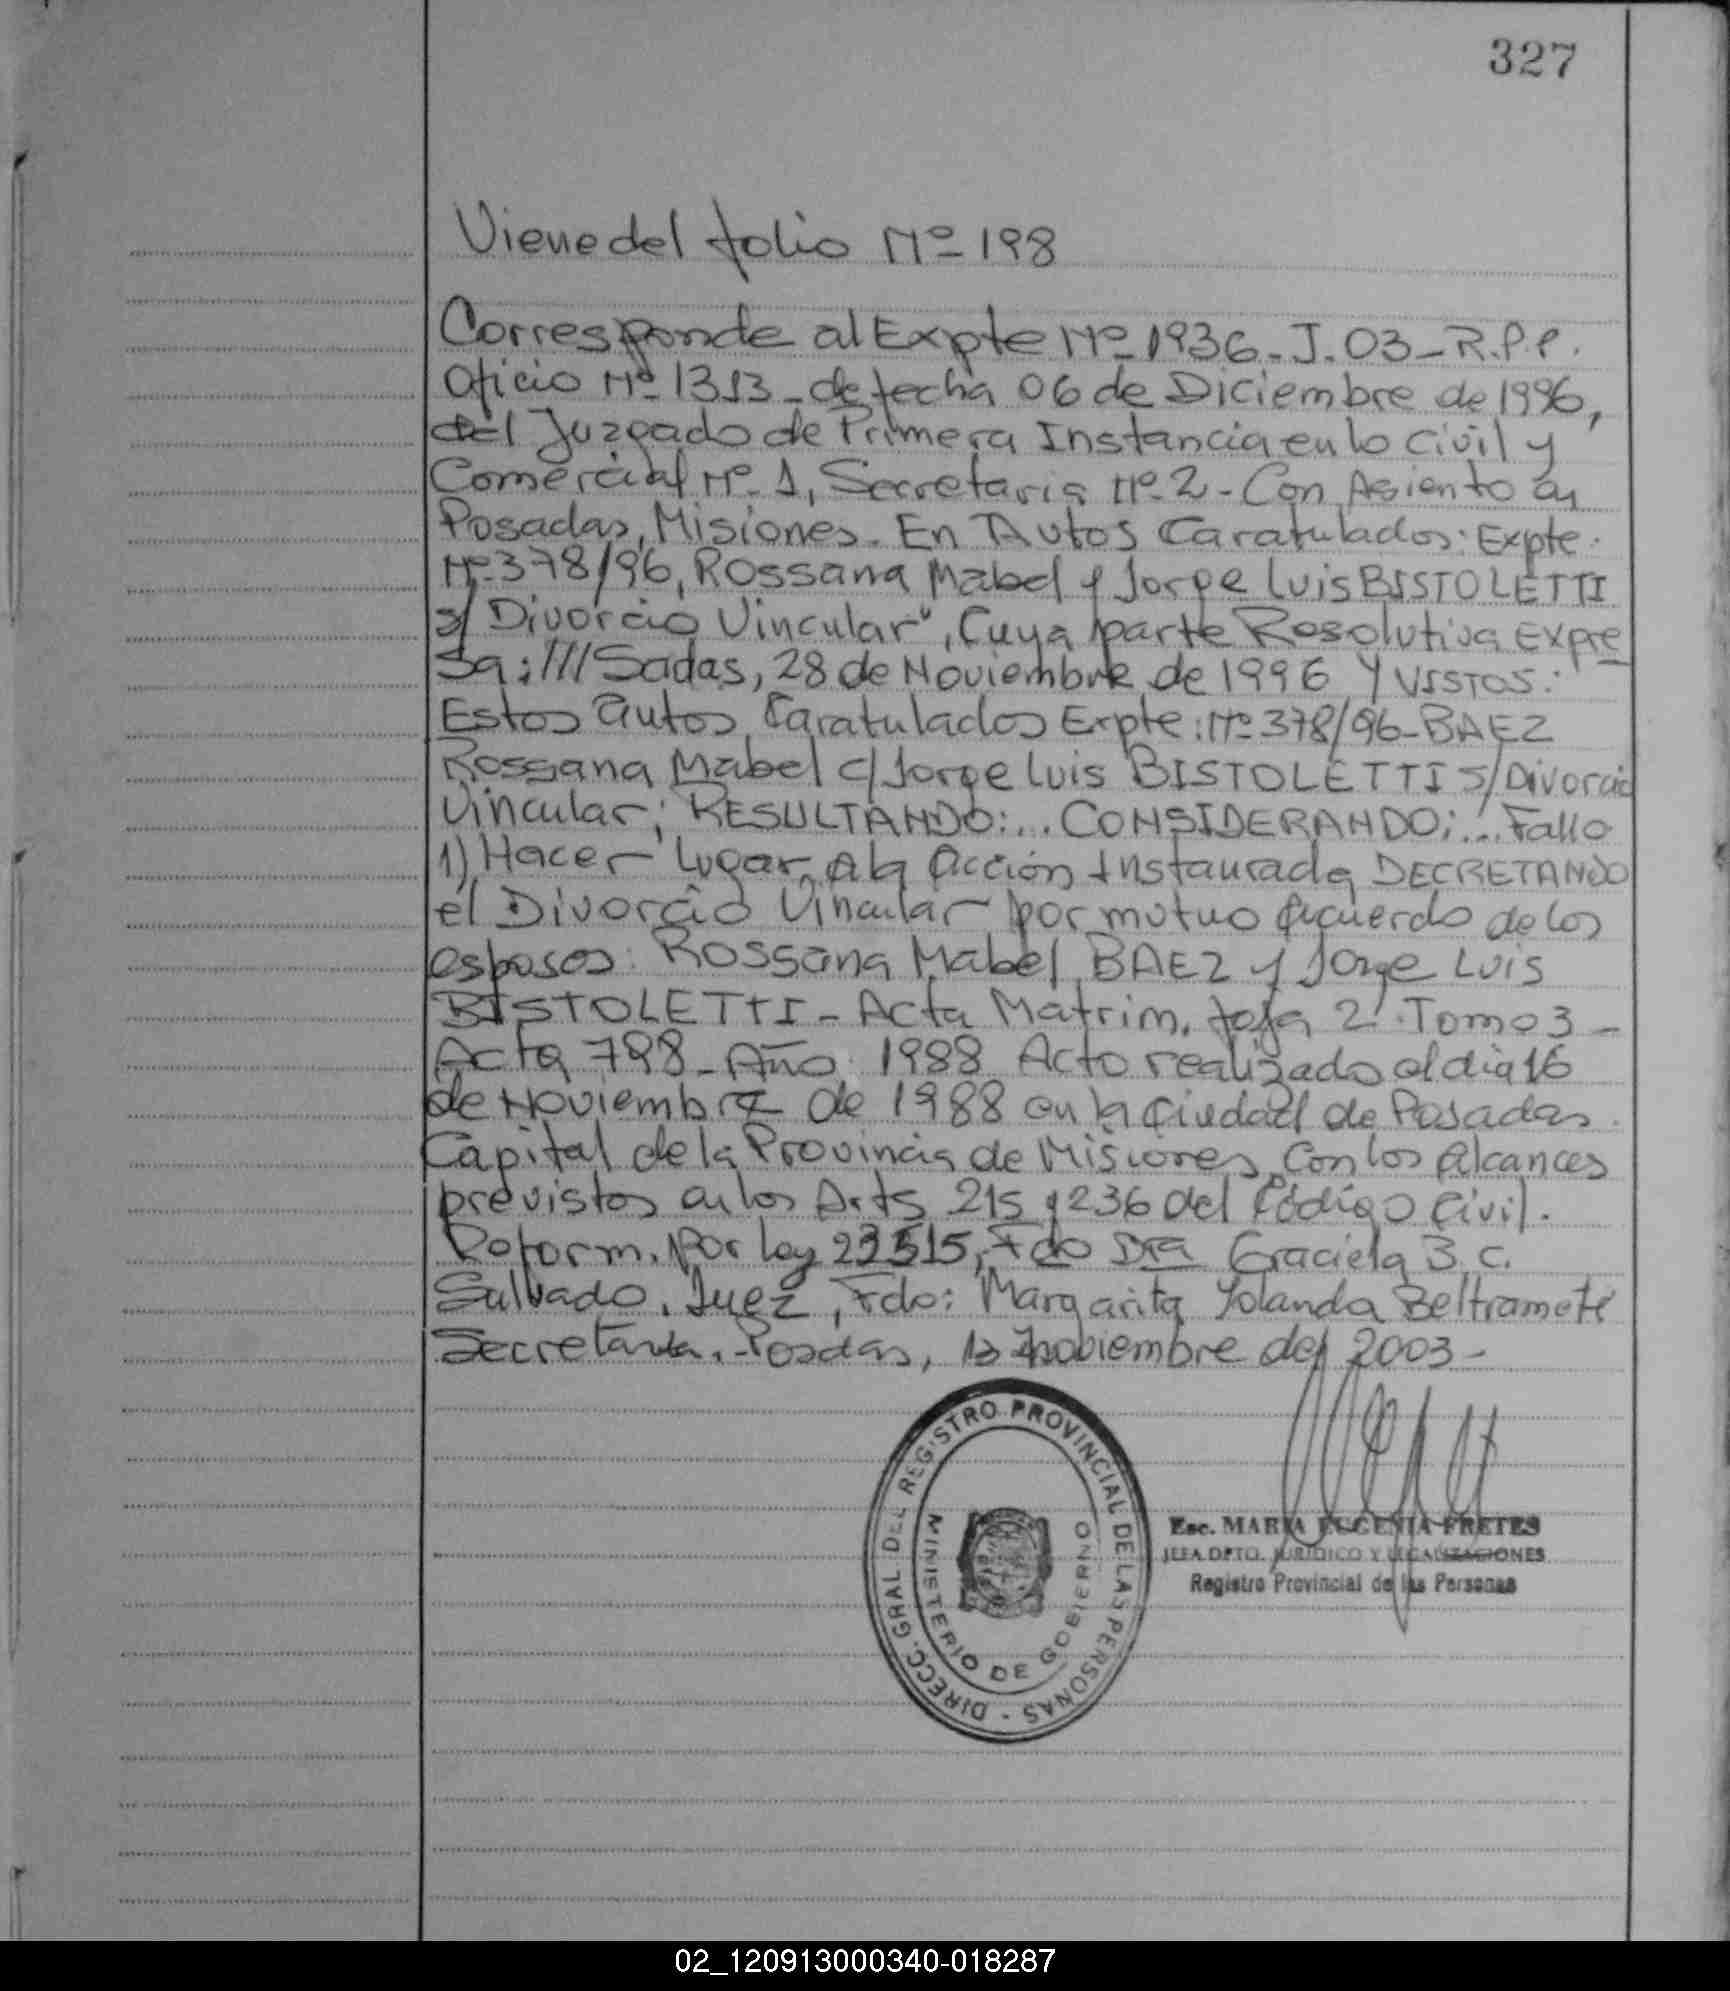 327
Viene del folio Nº 198
Corresponde al Expte Nº 1936-J-03-R.P.P.
Oficio Nº 1313-de fecha 06 de Diciembre de 1996,
del Juzgado de Primera Instancia en lo Civil y
Comercial Nº 1, Secretaria Nº 2-Con Asiento en
Posadas, Misiones. En Autos Caratulados: Expte.
Nº 378/96, Rossana Mabel y Jorge Luis BISTOLETTI
s/ Divorcio Vincular", Cuya parte Resolutiva Expre
sa: ///Sadas, 28 de Noviembre de 1996 Y VISTOS:
Estos autos Caratulados Expte: Nº 378/96-BAEZ
Rossana Mabel c/ Jorge Luis BISTOLETTI S/ Divorcio
Vincular; RESULTANDO:... CONSIDERANDO:... Fallo
1) Hacer lugar a la acción Instaurada DECRETANDO
el Divorcio Vincular por mutuo acuerdo de los
esposos: Rossana Mabel BAEZ y Jorge Luis
BISTOLETTI-Acta Matrim. foja 2 Tomo 3-
Acta 798-Año 1988 Acto realizado el dia 16
de Noviembre de 1988 en la Ciudad de Posadas
Capital de la Provincia de Misiones, con los alcances
previstos en los Arts 215 y 236 del Código Civil.
Reform. por ley 23515, Fdo Dra Graciela B. C.
Salvado. Juez, Fdo: Margarita Yolanda
Secretaria. Posadas, 13 noviembre del 2003-
DIRECC. GRAL. DEL REGISTRO PROVINCIAL DE LAS PERSONAS -
MINISTERIO DE GOBIERNO
Esc. MARIA EUGENIA FRETES
JEFA DPTO. JURIDICO Y LEGALIZACIONES
Registro Provincial de las Personas
02_120913000340-018287